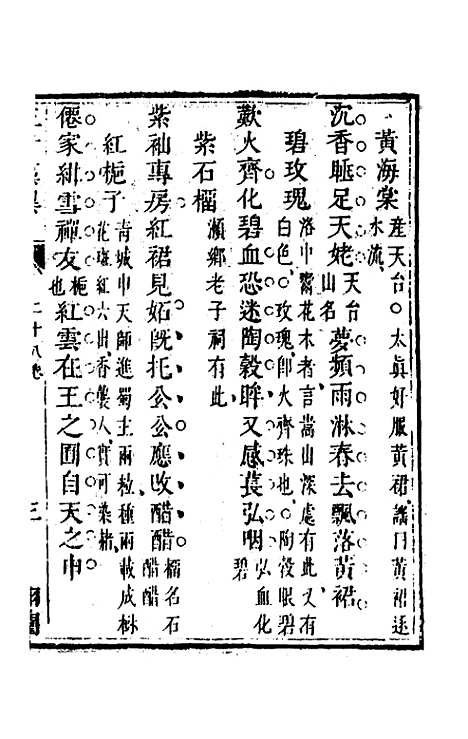 黃海棠 產天台○太眞好服黃裙謠曰黃裙逐
水流
沉香睡足天姥天台山名夢頻雨淋春去飄落黃裙
碧玫瑰 洛中鬻花木者言嵩山深處有此又有
白色○玫瑰卽火齊珠也○陶穀眼碧
歎火齊化碧血恐迷陶穀眸又感萇弘咽弘血化碧
紫石榴 瀨鄉老子祠有此
紫袖專房紅裙見妬旣托公公應改醋醋榴名石醋醋
紅梔子 青城申天師進蜀主兩粒種兩載成樹
花斑紅六出香襲人實可染赭
僊家絳雪禪友梔也紅雲在王之囿自天之申
二十八卷
三